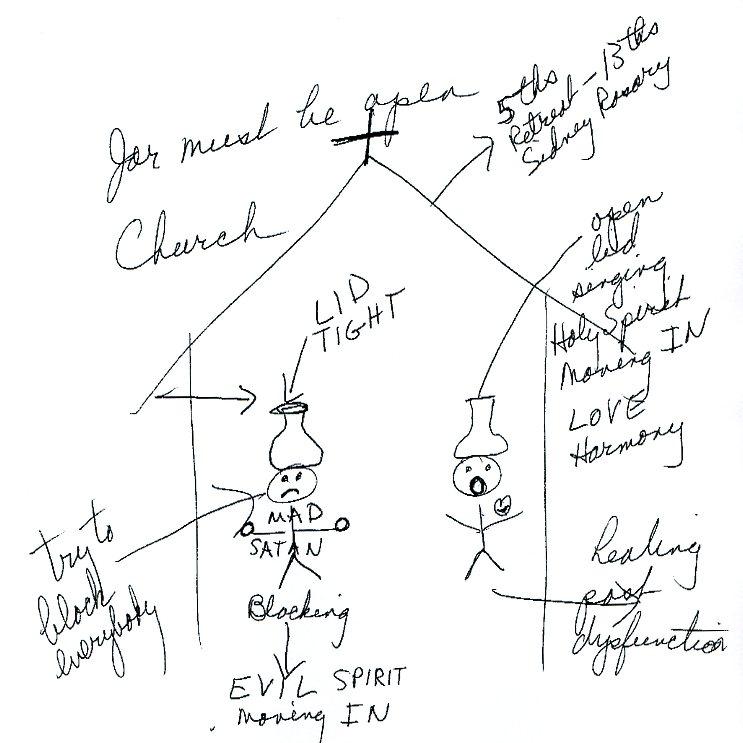 Jar must be open
5ths
Retreat - 13ths
Sidney Rosary
Church
open
lid
singing
Holy Spirit
Moving IN
LOVE
Harmony
LID
TIGHT
MAD
SATAN
try to
block
everybody
Blocking
EVIL SPIRIT
moving IN
healing
past
dysfunction